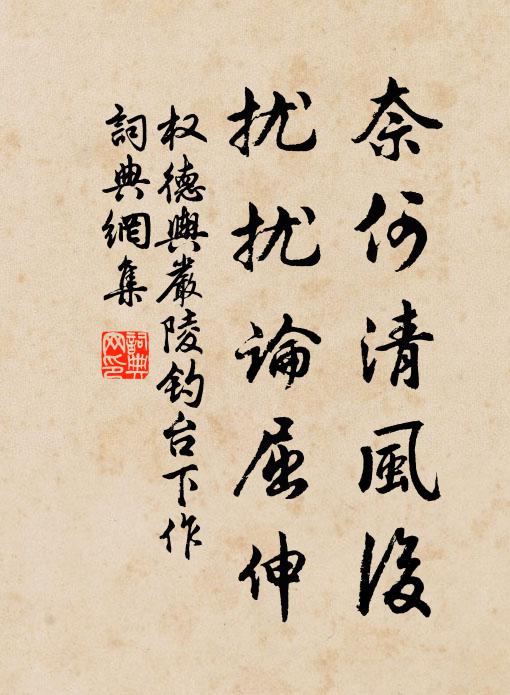 奈何清風後
扰扰論屈伸
权德輿嚴陵钓台下作
詞典網集
詞典网印